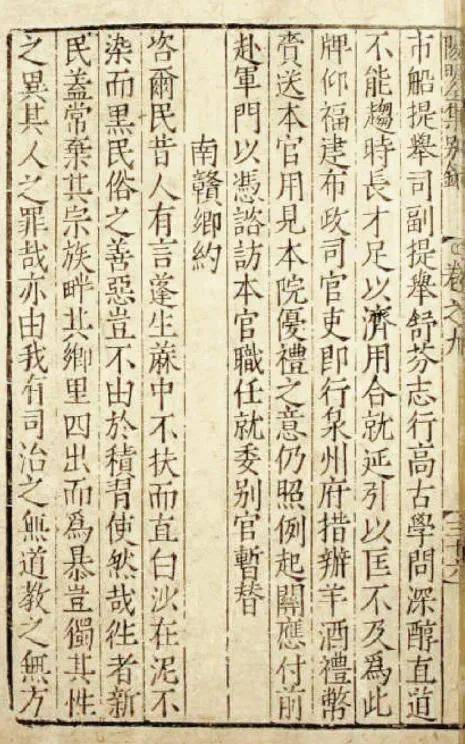 陽明全集別錄 卷之九 三十六
市船提舉司副提舉舒芬志行高古學問深醇直道
不能趨時長才足以濟用合就延引以匡不及為此
牌仰福建布政司官吏即行泉州府措辦羊酒禮幣
賫送本官用見本院優禮之意仍照例起關應付前
赴軍門以憑諮訪本官職任就委别官暫替
南贛鄉約
咨爾民昔人有言蓬生蔴中不扶而直白沙在泥不
染而黑民俗之善惡豈不由於積習使然哉徃者新
民蓋常棄其宗族畔其鄉里四出而爲暴豈獨其性
之異其人之罪哉亦由我有司治之無道教之無方